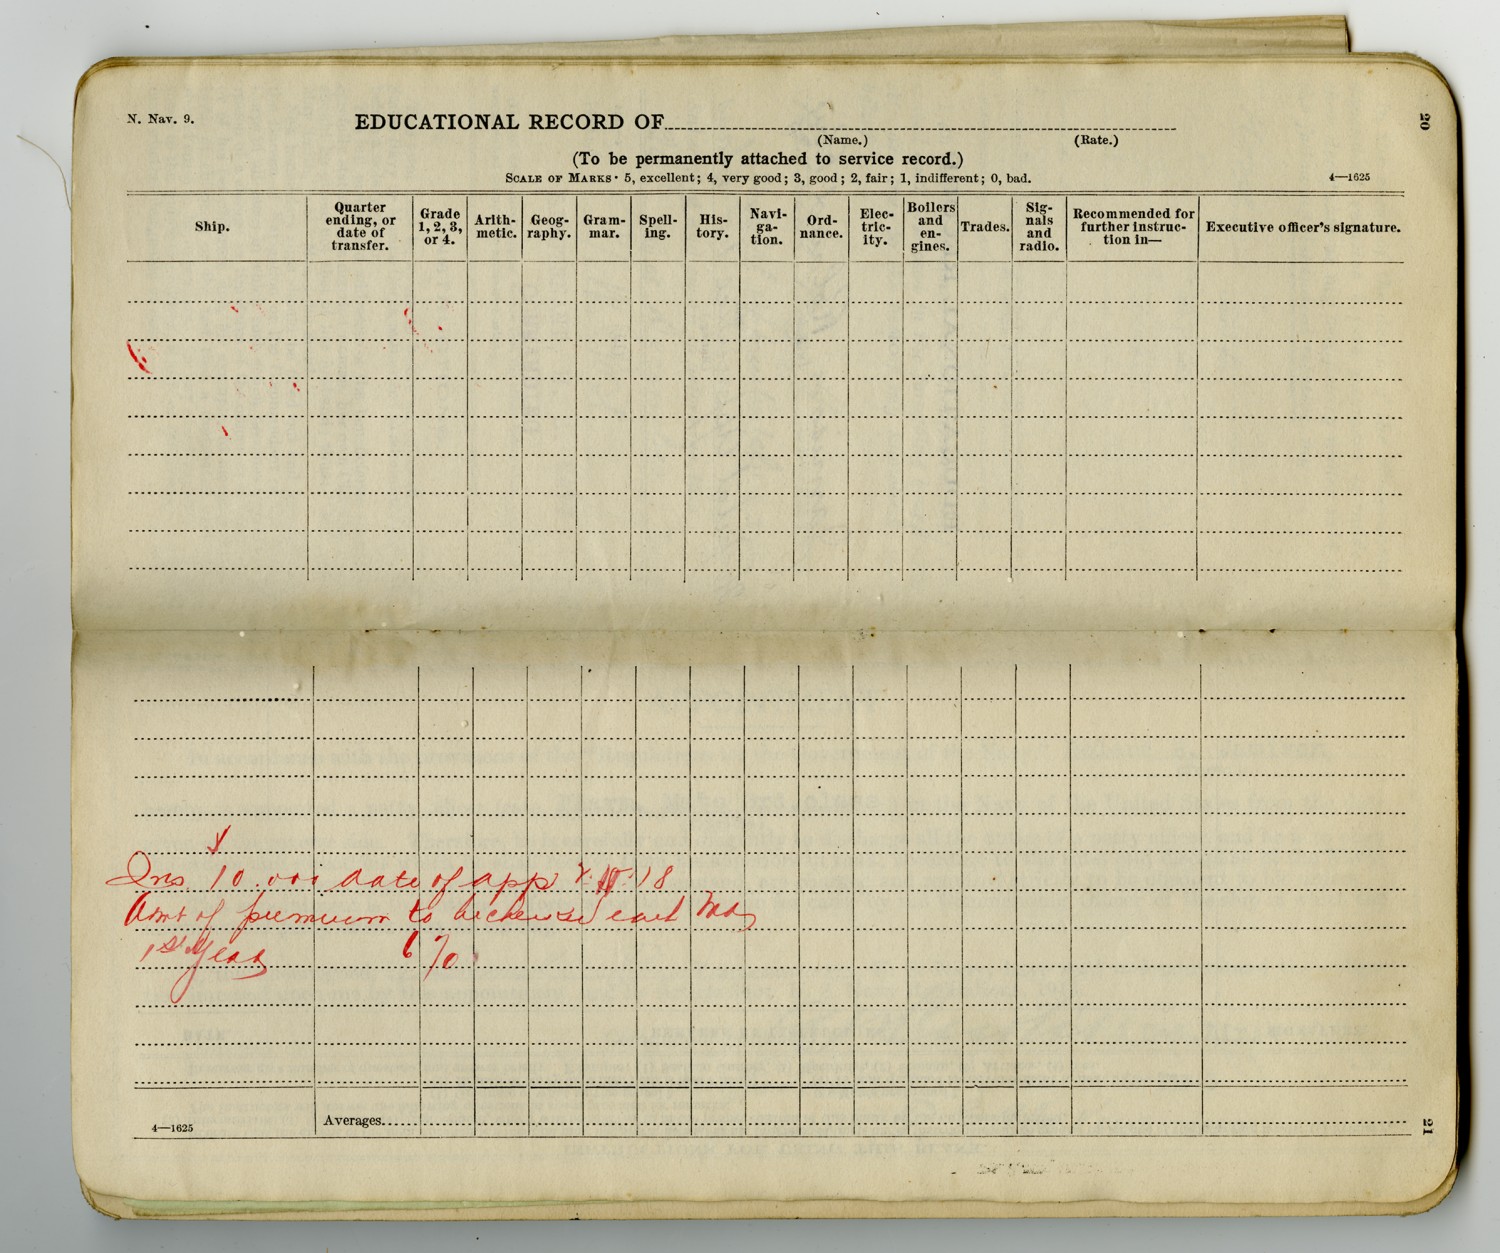 N. Nav. 9.
EDUCATIONAL RECORD OF
(Name.) (Rate.)
(To be permanently attached to service record.)
SCALE OF MARKS · 5, excellent; 4, very good; 3, good; 2, fair; 1, indifferent; 0, bad.
4—1625
20
Ship.
Quarter
ending, or
date of
transfer.
Grade
1, 2, 3,
or 4.
Arith-
metic.
Geog-
raphy.
Gram-
mar.
Spell-
ing.
His-
tory.
Navi-
ga-
tion.
Ord-
nance.
Elec-
tric-
ity.
Boilers
and
en-
gines.
Trades.
Sig-
nals
and
radio.
Recommended for
further instruc-
tion in—
Executive officer's signature.
Ins 10.000 date of app 18
Amt of premium to each
1st Year 6 70
Averages
4—1625
21